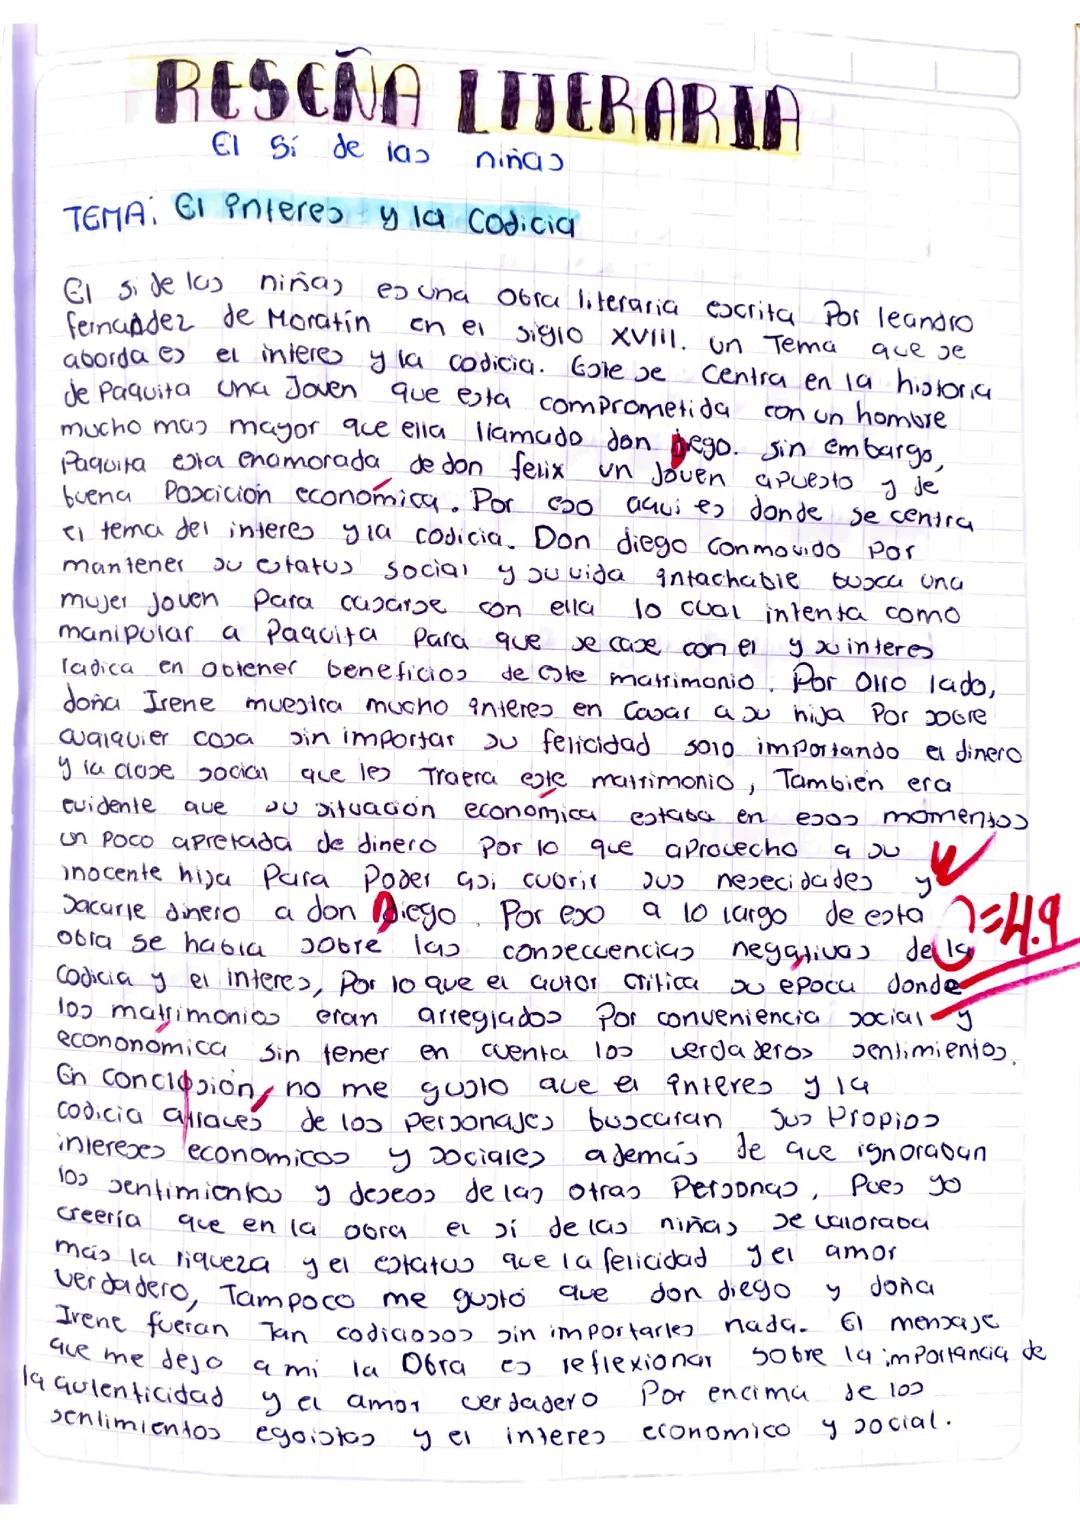 RESEÑA LITERARIA
El Sí de las niñas
TEMA: El interes y la Codicia
El si de las niñas es una obra literaria escrita Por leandro
fernandez de Moratín en el siglo XVIII. un Tema que se
aborda es el interes y la codicia. Este se centra en la historia
de Paquita una Joven que esta comprometida con un hombre
mucho mas mayor que ella llamado don Diego. sin embargo,
Paquita esta enamorada de don felix un Joven apuesto y de
buena Poscición económica. Por eso aqui es donde se centra
el tema del interes y la codicia. Don diego conmovido por
mantener su estatus social y su vida intachable busca una
mujer joven para casarse con ella lo cual intenta como
manipular a Paquita para que se case con el y su interes
radica en obtener beneficios de este matrimonio. Por otro lado,
doña Irene muestra mucho interes en casar a su hija Por sobre
cualquier cosa sin importar su felicidad solo importando el dinero
y la clase social que les Traera este matrimonio, También era
evidente que su situación económica estaba en esos momentos
un poco apretada de dinero por lo que aprovecho a su
inocente hija Para Poder asi cubrir sus nesecidades y
sacarle dinero a don Diego. Por eso a lo largo de esta
obra se habla sobre las conseccuencias negativas de la
codicia y el interes, Por lo que el autor critica su epoca donde
los matrimonios eran arreglados Por conveniencia social y
econonómica sin tener en cuenta los verdaderos sentimientos.
En conclusión, no me gusto que el interes y la
codicia através de los personajes buscaran sus Propios
intereses economicos y sociales además de que ignoraban
los sentimientos y deseos de las otras Personas, Pues yo
creería que en la obra el sí de las niñas se valoraba
más la riqueza y el estatus que la felicidad y el amor
verdadero, Tampoco me gustó que don diego y doña
Irene fueran Tan codiciosos sin importarles nada. El mensaje
que me dejo a mi la Obra es reflexionar sobre la importancia de
la autenticidad y el amor verdadero Por encima de los
sentimientos egoistas y el interes economico y social.
=4.9